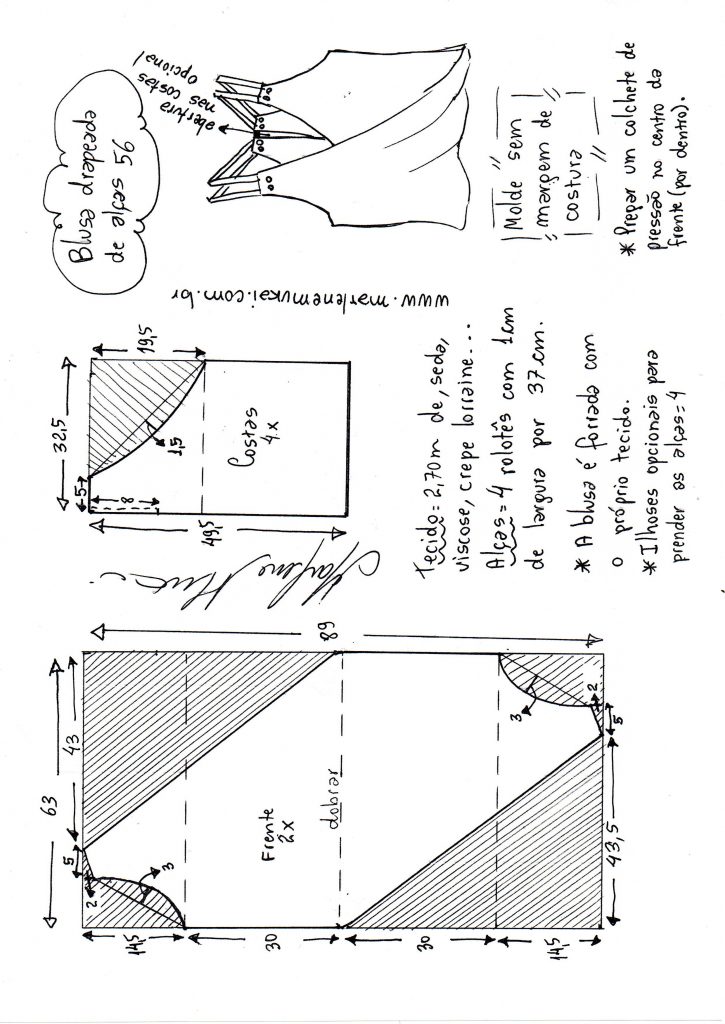 Blusa drapeada
de alças 56
abertura
nas costas
opcional
Molde sem
margem de
costura
* Pregar um colchete de
pressão no centro da
frente (por dentro).
www.marlenemukai.com.br
32,5
19,5
1,5
5
8
49,5
Costas
4x
Tecido = 2,70m de, seda,
viscose, crepe lorraine...
Alças = 4 rolotês com 1cm
de largura por 37 cm.
* A blusa é forrada com
o próprio tecido.
* Ilhoses opcionais para
prender as alças = 4
Marlene Mukai
63
43
5
2
3
14,5
30
30
14,5
89
Frente
2x
dobrar
3
2
5
43,5